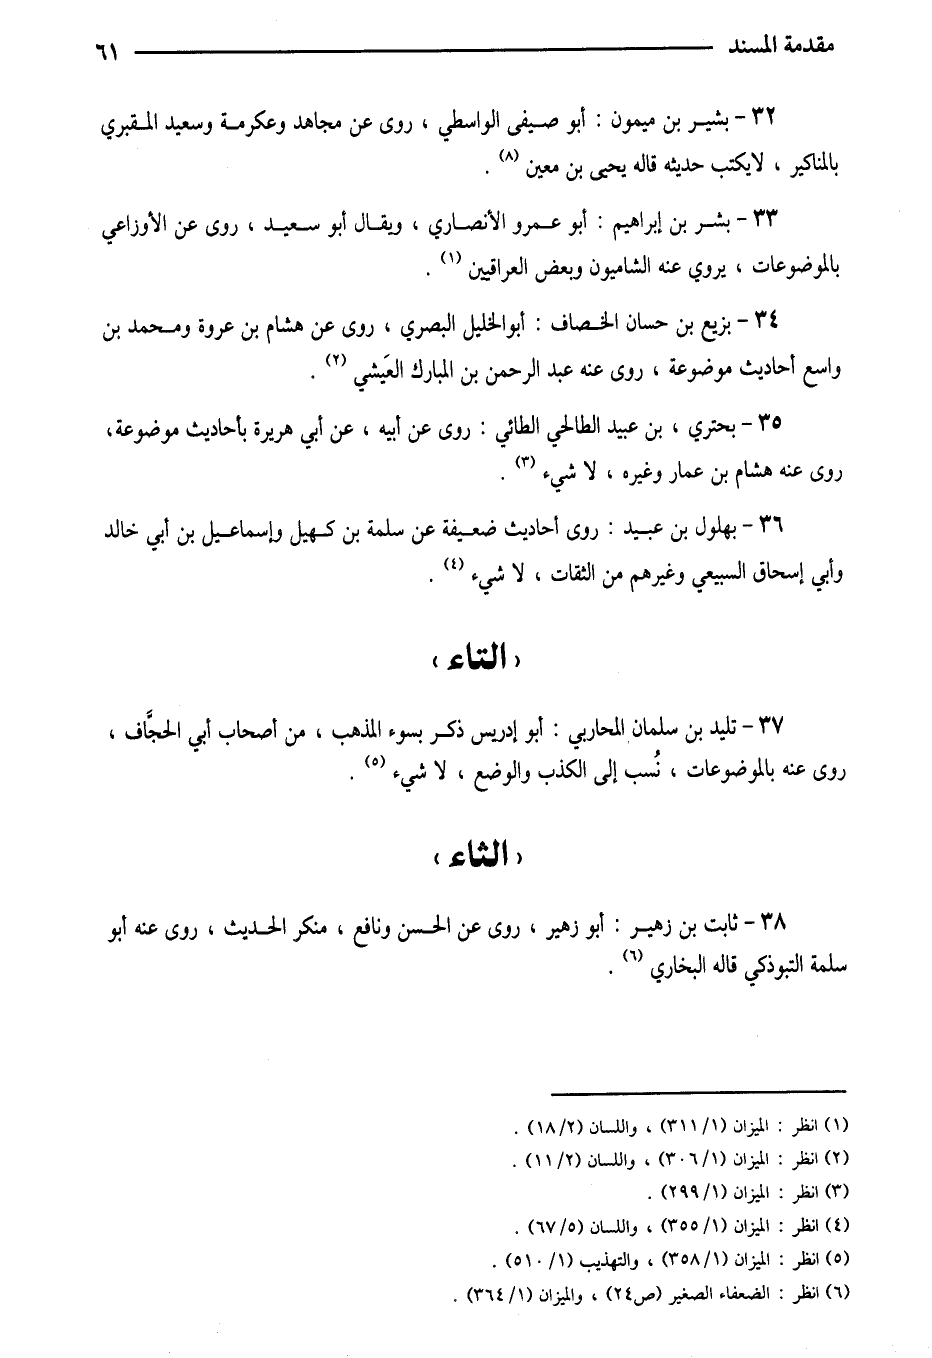 مقدمة المسند ٦١
٣٢ - بشير بن ميمون : أبو صيفى الواسطي ، روى عن مجاهد وعكرمة وسعيد المقبري
بالمناكير ، لايكتب حديثه قاله يحيى بن معين (٨) .
٣٣ - بشر بن إبراهيم : أبو عمرو الأنصاري ، ويقال أبو سعيد ، روى عن الأوزاعي
بالموضوعات ، يروي عنه الشاميون وبعض العراقيين (١) .
٣٤ - بزيع بن حسان الخصاف : أبوالخليل البصري ، روى عن هشام بن عروة ومحمد بن
واسع أحاديث موضوعة ، روى عنه عبد الرحمن بن المبارك العَيشي (٢) .
٣٥ - بحتري ، بن عبيد الطالحي الطائي : روى عن أبيه ، عن أبي هريرة بأحاديث موضوعة،
روى عنه هشام بن عمار وغيره ، لا شيء (٣) .
٣٦ - بهلول بن عبيد : روى أحاديث ضعيفة عن سلمة بن كهيل وإسماعيل بن أبي خالد
وأبي إسحاق السبيعي وغيرهم من الثقات ، لا شيء (٤) .
﴿ التاء ﴾
٣٧ - تليد بن سلمان المحاربي : أبو إدريس ذكر بسوء المذهب ، من أصحاب أبي الحجَّاف ،
روى عنه بالموضوعات ، نُسب إلى الكذب والوضع ، لا شيء (٥) .
﴿ الثاء ﴾
٣٨ - ثابت بن زهير : أبو زهير ، روى عن الحسن ونافع ، منكر الحديث ، روى عنه أبو
سلمة التبوذكي قاله البخاري (٦) .
(١) انظر : الميزان (٣١١/١) ، واللسان (١٨/٢) .
(٢) انظر : الميزان (٣٠٦/١) ، واللسان (١١/٢) .
(٣) انظر : الميزان (٢٩٩/١) .
(٤) انظر : الميزان (٣٥٥/١) ، واللسان (٦٧/٥) .
(٥) انظر : الميزان (٣٥٨/١) ، والتهذيب (٥١٠/١) .
(٦) انظر : الضعفاء الصغير (ص٢٤) ، والميزان (٣٦٤/١) .